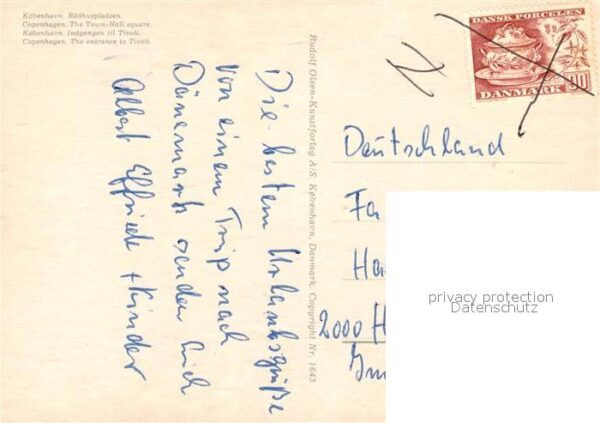 København. Rådhuspladsen.
Copenhagen. The Town-Hall square.
København. Indgangen til Tivoli.
Copenhagen. The entrance to Tivoli.
Die besten Urlaubsgrüße
von einem Trip nach
Dänemark senden Euch
Albert Elfriede + Kinder
Rudolf Olsen-Kunstforlag A/S, København, Danmark. Copyright Nr. 1643
DANSK PORCELÆN
DANMARK 90
Deutschland
Fa
Ha
2000 H
privacy protection
Datenschutz